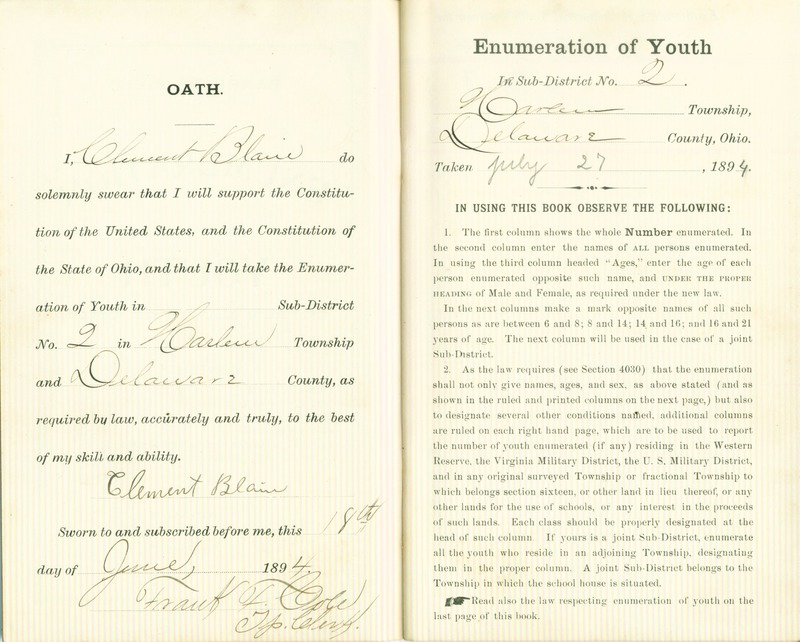 OATH.
I, Clement Blain do
solemnly swear that I will support the Constitu-
tion of the United States, and the Constitution of
the State of Ohio, and that I will take the Enumer-
ation of Youth in Sub-District
No. 2 in Harlem Township
and Delaware County, as
required by law, accurately and truly, to the best
of my skill and ability.
Clement Blain
Sworn to and subscribed before me, this 18th
day of June, 1894.
Frank F. Cole
Tp. Clerk.
Enumeration of Youth
In Sub-District No. 2.
Harlem Township,
Delaware County, Ohio.
Taken July 27, 1894.
IN USING THIS BOOK OBSERVE THE FOLLOWING:
1. The first column shows the whole Number enumerated. In
the second column enter the names of ALL persons enumerated.
In using the third column headed "Ages," enter the age of each
person enumerated opposite such name, and UNDER THE PROPER
HEADING of Male and Female, as required under the new law.
In the next columns make a mark opposite names of all such
persons as are between 6 and 8; 8 and 14; 14 and 16; and 16 and 21
years of age. The next column will be used in the case of a joint
Sub-District.
2. As the law requires (see Section 4030) that the enumeration
shall not only give names, ages, and sex, as above stated (and as
shown in the ruled and printed columns on the next page,) but also
to designate several other conditions named, additional columns
are ruled on each right hand page, which are to be used to report
the number of youth enumerated (if any) residing in the Western
Reserve, the Virginia Military District, the U. S. Military District,
and in any original surveyed Township or fractional Township to
which belongs section sixteen, or other land in lieu thereof, or any
other lands for the use of schools, or any interest in the proceeds
of such lands. Each class should be properly designated at the
head of such column. If yours is a joint Sub-District, enumerate
all the youth who reside in an adjoining Township, designating
them in the proper column. A joint Sub-District belongs to the
Township in which the school house is situated.
Read also the law respecting enumeration of youth on the
last page of this book.